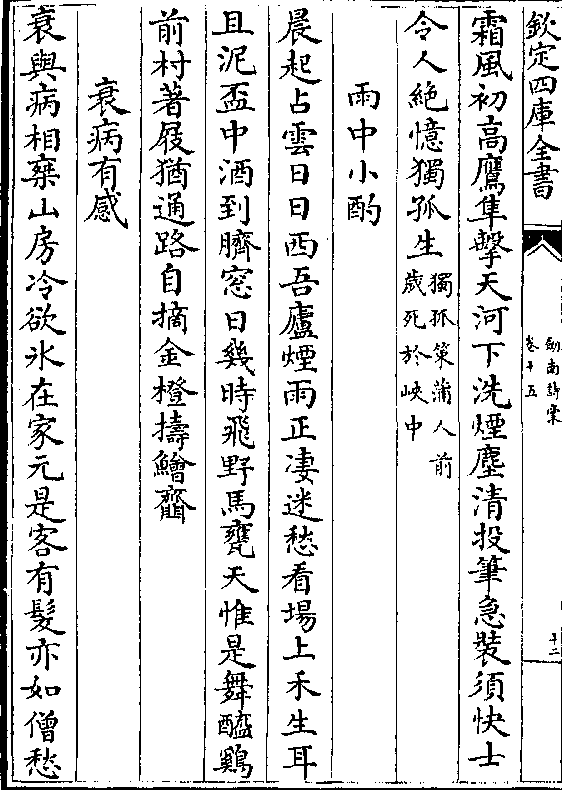 欽定四庫全書
劒南詩稾
卷十五
十二
霜風初高鷹隼擊天河下洗煙塵清投筆急裝須快士
令人絶憶獨孤生獨孤策蒲人前
歳死於峽中
雨中小酌
晨起占雲日日西吾廬煙雨正凄迷愁看場上禾生耳
且泥盃中酒到臍窓日幾時飛野馬甕天惟是舞醯鷄
前村著屐猶通路自摘金橙擣鱠齏
衰病有感
衰與病相乗山房冷欲氷在家元是客有髮亦如僧愁